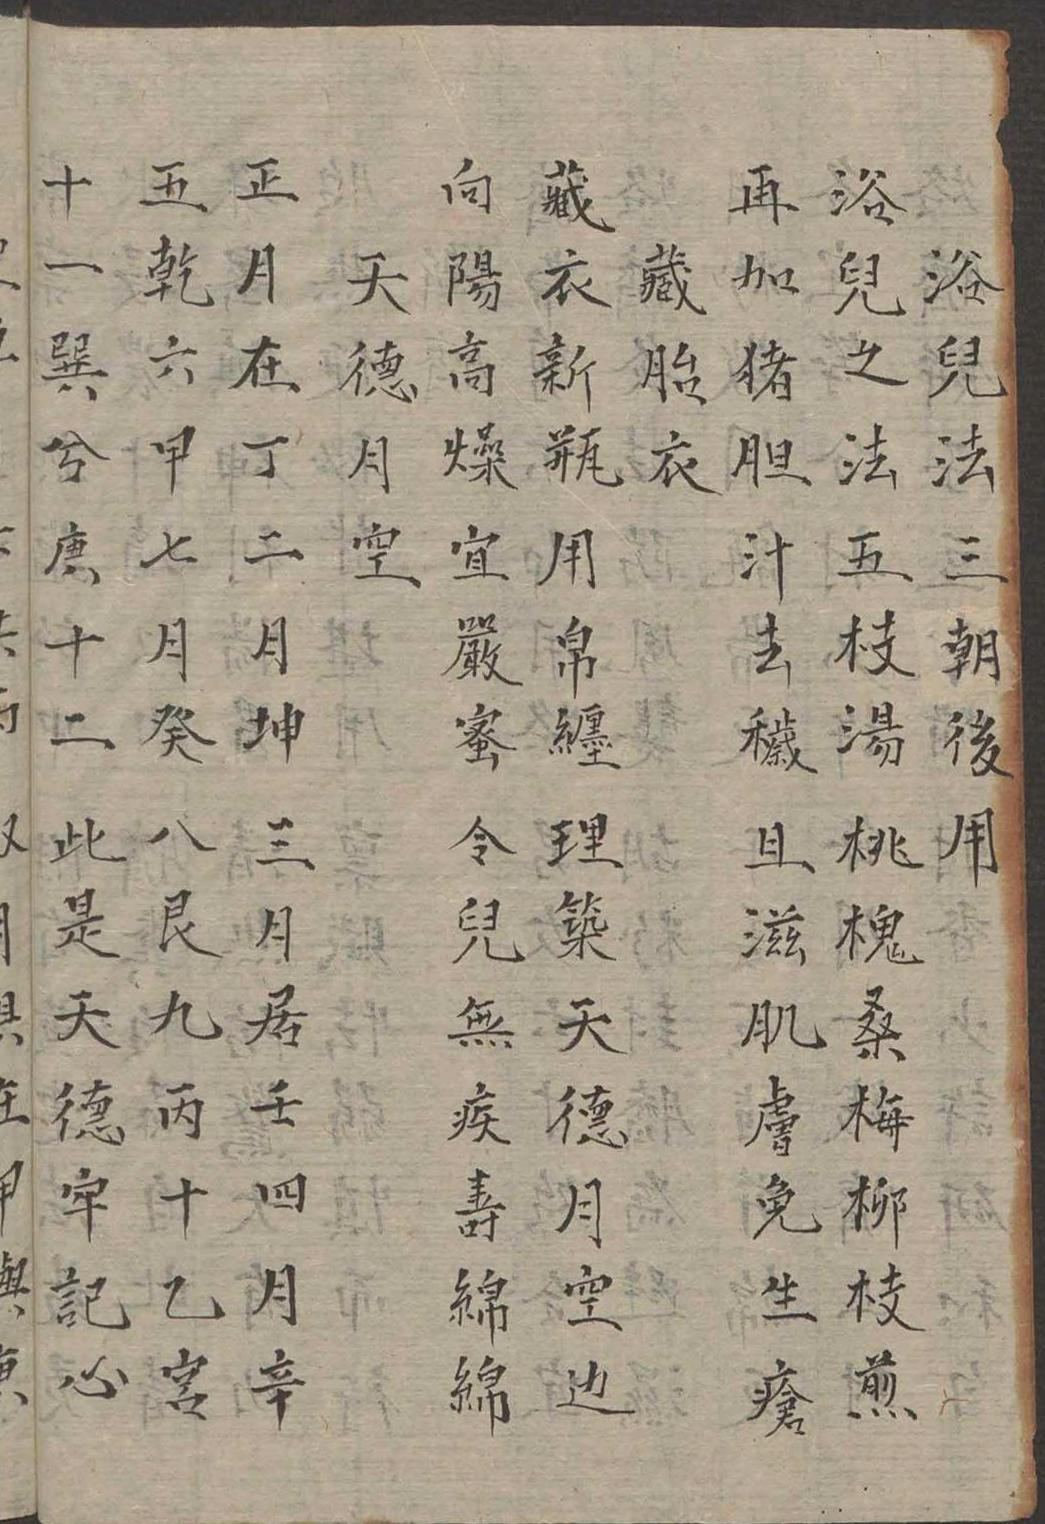 浴兒法三朝後用
浴兒之法五枝湯桃槐桑梅柳枝煎
再加猪胆汁去穢且滋肌膚免生瘡
藏胎衣
藏衣新瓶用帛纏理築天德月空边
向陽高燥宜嚴蜜令兒無疾壽綿綿
天德月空
正月在丁二月坤三月居壬四月辛
五乾六甲七月癸八艮九丙十乙宮
十一巽兮庚十二此是天德牢記心